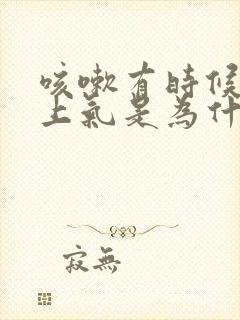 咳嗽有時候
上氣是為什
寂無